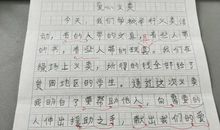 爱心义卖
今天，我们学校举行义卖活
动，有的人带的文具，有些人带
的书，有些人带的钱。我们在
绿地上义卖，所得的钱会好给了
贫困地区的学生。通过这次义卖
我明白了要帮助他人，向需要的
人伸出援助之手，献出我们的爱